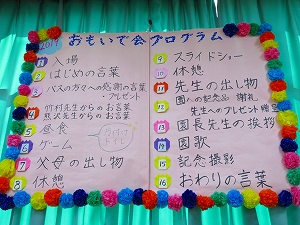 2014
おもいで会プログラム
1 入場
2 はじめの言葉
3 バスの方々への感謝の言葉
プレゼント
4 竹村先生からのお言葉
熊沢先生からのお言葉
5 昼食
6 ゲーム
7 父母の出し物
8 休憩
9 スライドショー
10 休憩
11 先生の出し物
12 園への記念品 謝礼
先生へのプレゼント贈呈
13 園長先生の挨拶
14 園歌
15 記念撮影
16 おわりの言葉